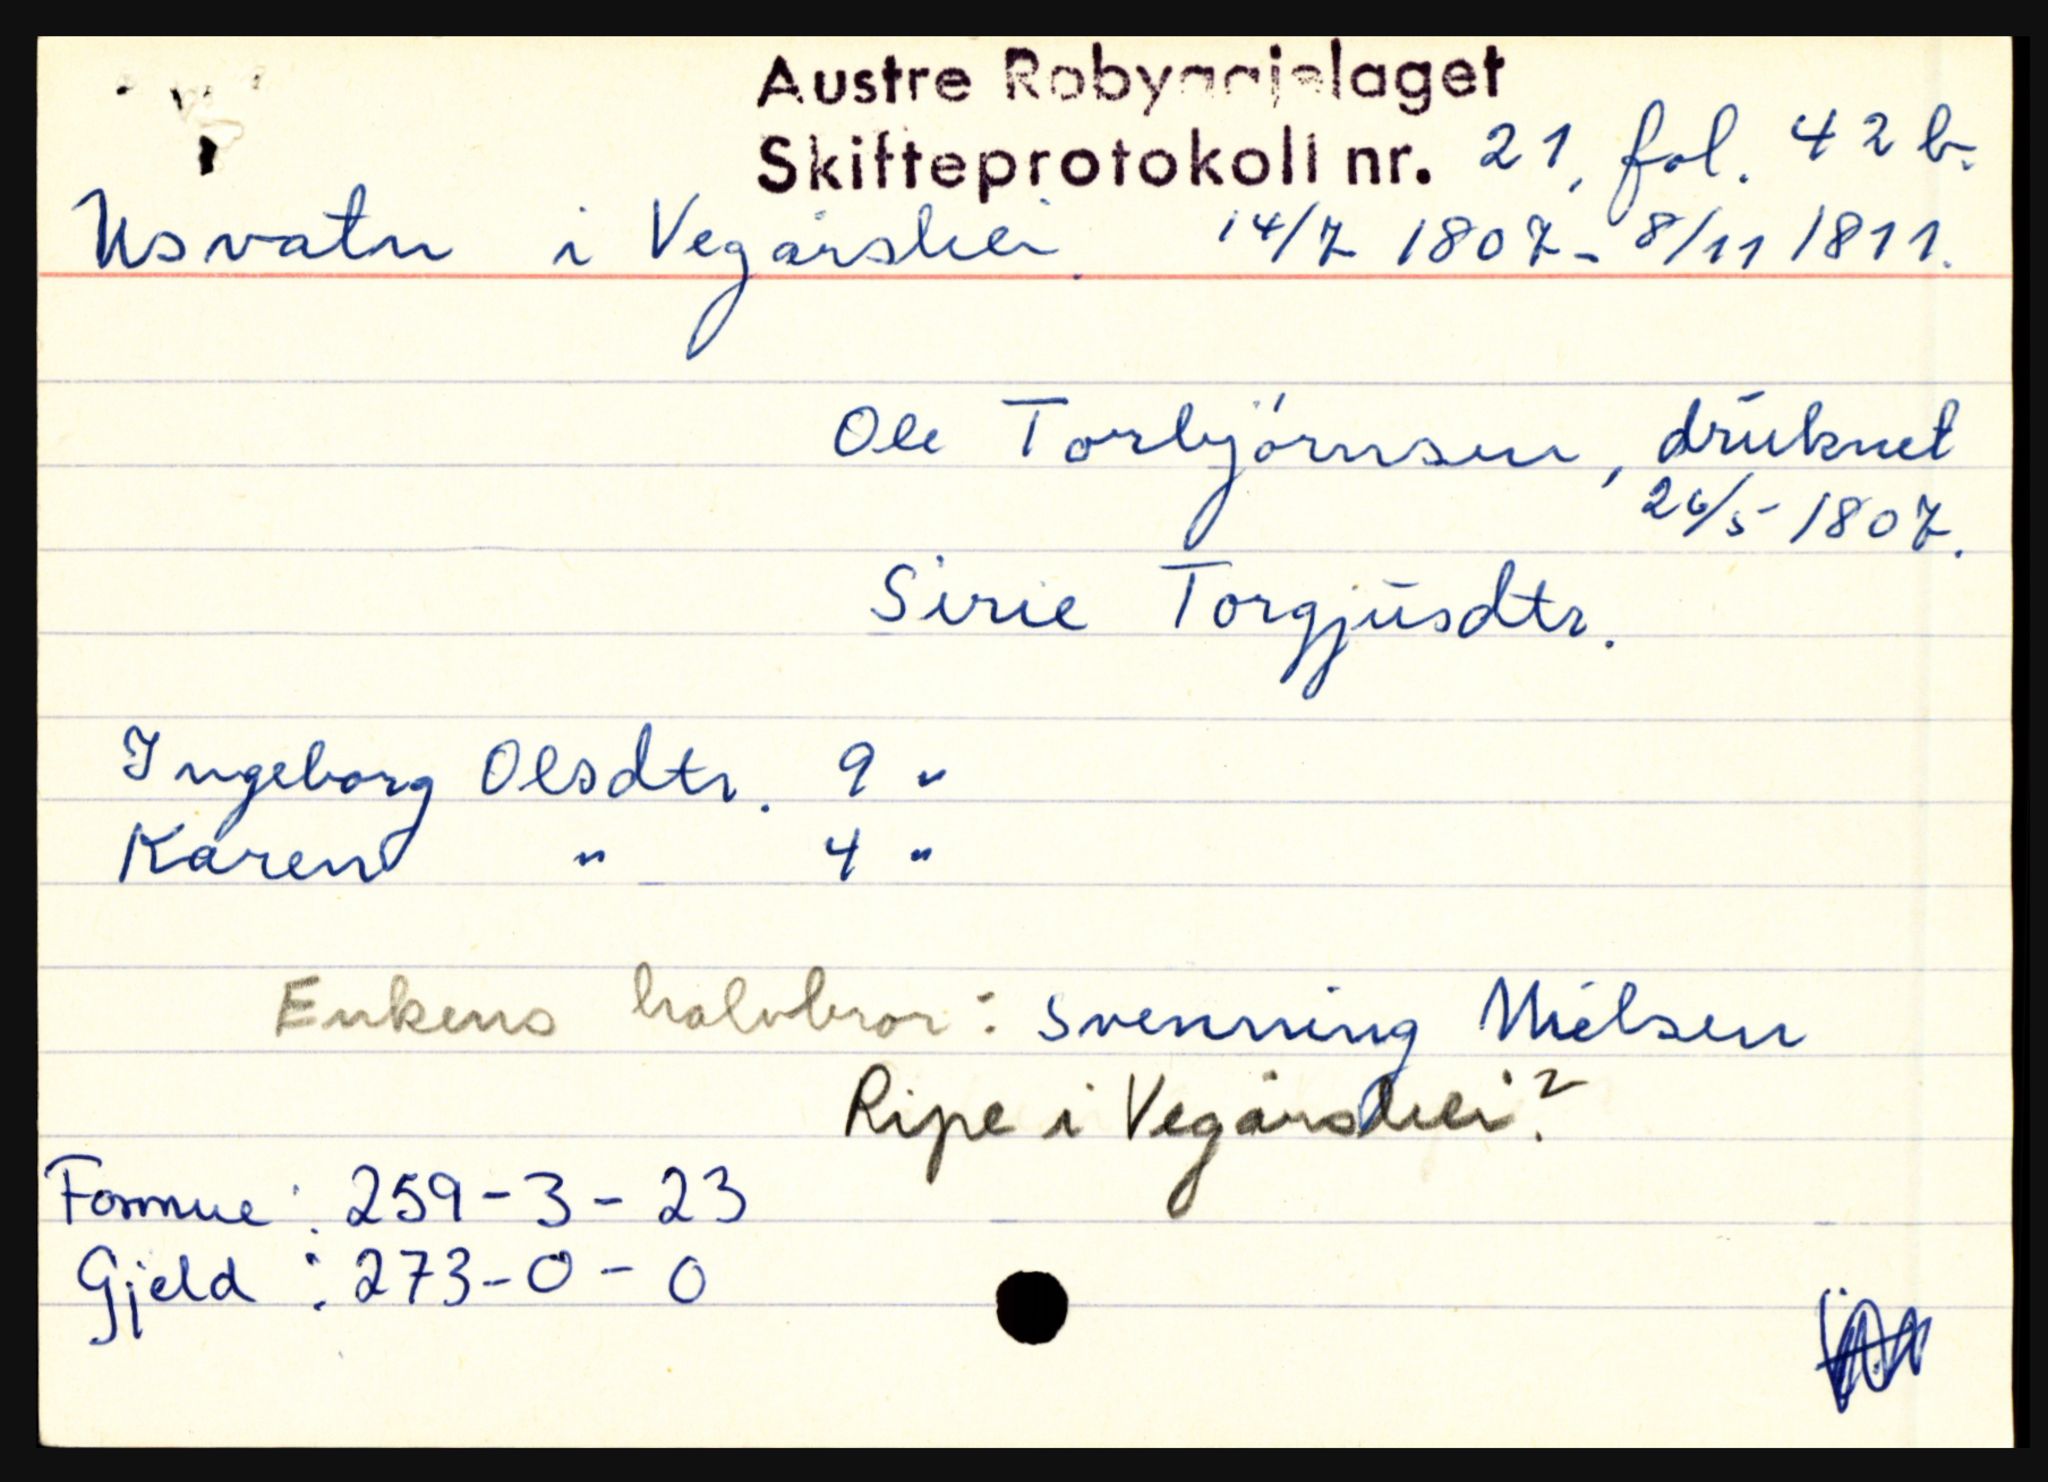 Austre Robyggjelaget
Skifteprotokoll nr. 21, fol. 42 b.
Usvatn i Vegårshei. 14/7 1807 - 8/11 1811.
Ole Torbjörnsen, druknet
26/5 1807.
Sirie Torgjusdtr.
Ingeborg Olsdtr. 9 "
Karen " 4 "
Enkens halvbror: Svenning Nielsen
Ripe i Vegårshei?
Formue: 259 - 3 - 23
Gjeld: 273 - 0 - 0